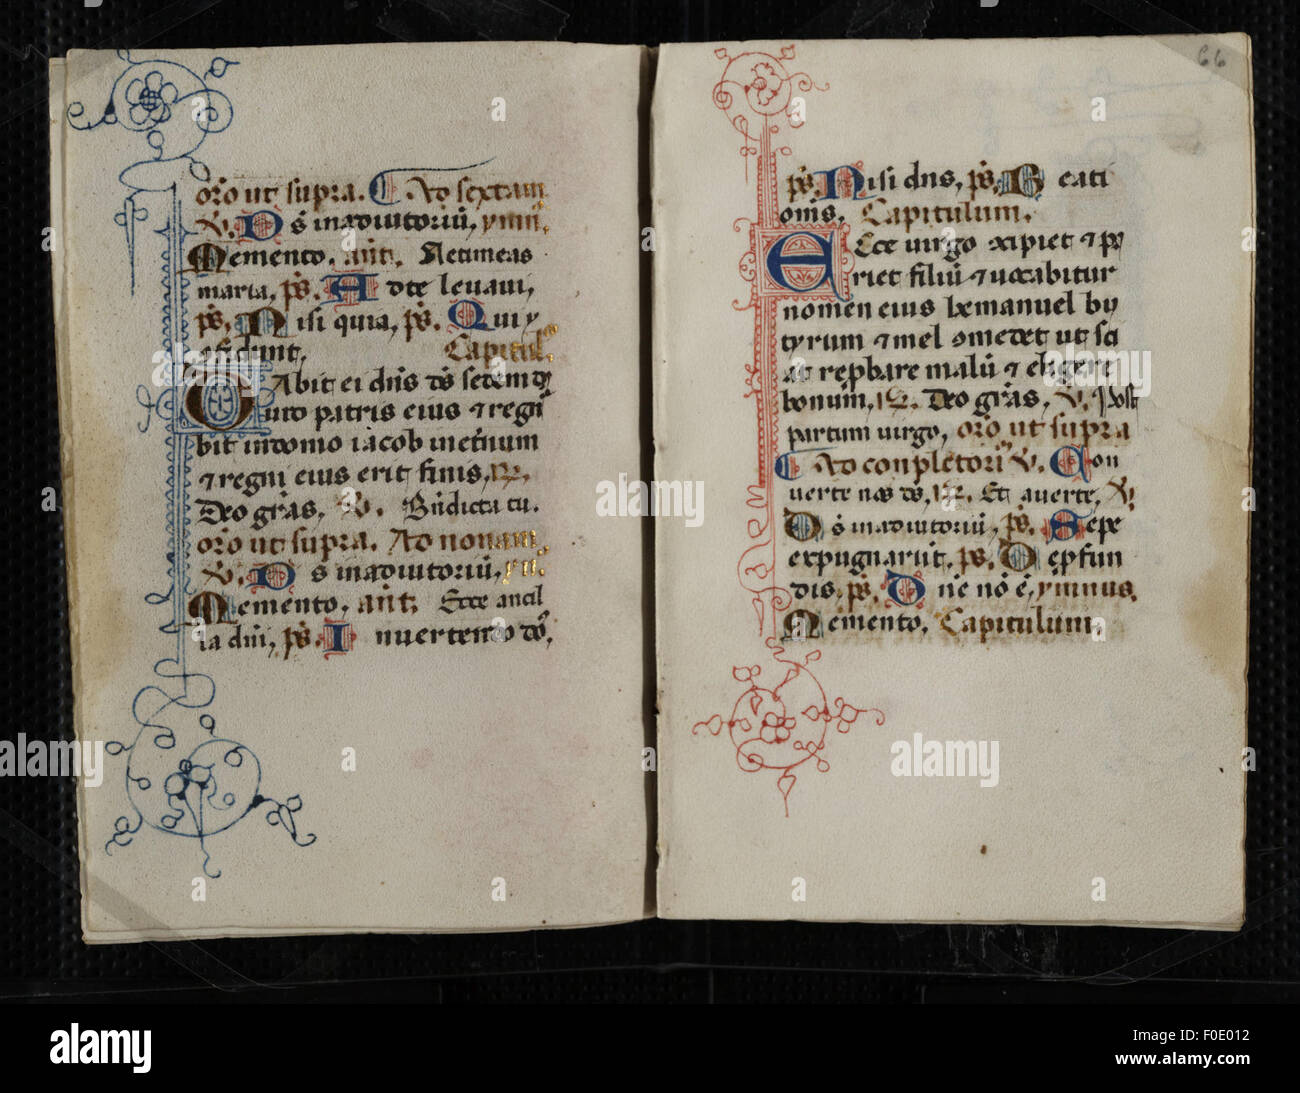 66
oro ut supra. Ad sextam
V. Ds inadiutoriū, ymn̄.
Memento. ant. Ne timeas
maria, ps. Ad te levavi,
ps. Nisi quia, ps. Qui 9
fidunt. Capitul.
Dabit ei dn̄s ds̄ sedem d
auid patris eius ⁊ regn
bit in domo iacob in et̄num
⁊ regni eius erit finis, R.
Deo grās, V. Bn̄dicta tu.
oro ut supra. Ad nonam.
V. Ds inadiutoriū, yn.
Memento. ant. Ecce ancil
la dni, ps. In uertendo dō,
ps. Nisi dn̄s, ps. Beati
omīs. Capitulum.
Ecce uirgo 9cipiet ⁊ pa
riet filiū ⁊ uocabitur
nomen eius hemanuel bu
tyrum ⁊ mel 9medet ut sci
at rep̄bare malū ⁊ eligere
bonum, R. Deo grās, V. post
partum uirgo, oro ut supra
Ad conpletoriū V. Con
uerte nos ds̄, R. Et auerte, V.
Ds inadiutoriū, ps. Sepe
expugnarūt. ps. De p̄fun
dis. ps. Dn̄e nō ē, ymnus.
Memento. Capitulum.
alamy
Image ID: F0E012
www.alamy.com